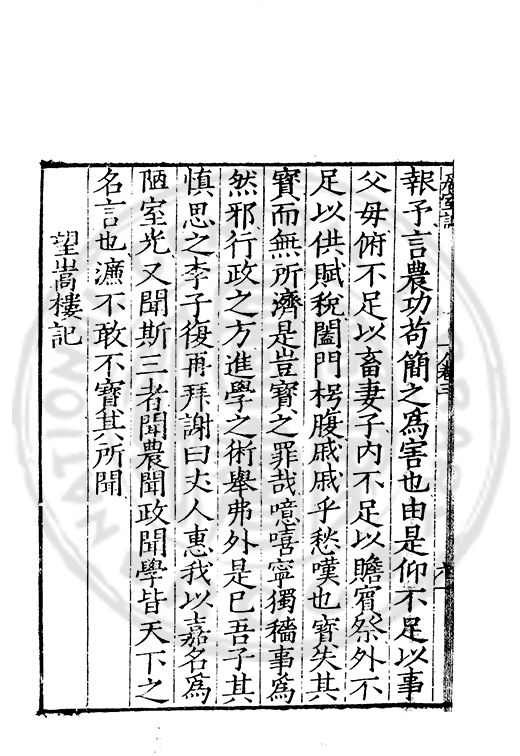 報予言農功苟簡之爲害也由是仰不足以事
父毋俯不足以畜妻子内不足以贍賓祭外不
足以供賦稅闔門枵腹戚戚乎愁嘆也寳失其
寳而無所濟是豈寳之罪哉噫嘻寧獨穡事爲
然邪行政之方進學之術舉弗外是巳吾子其
慎思之李子復再拜謝曰丈人惠我以嘉名爲
陋室光又聞斯三者聞農聞政聞學皆天下之
名言也濂不敢不寳其所聞
望嵩樓記